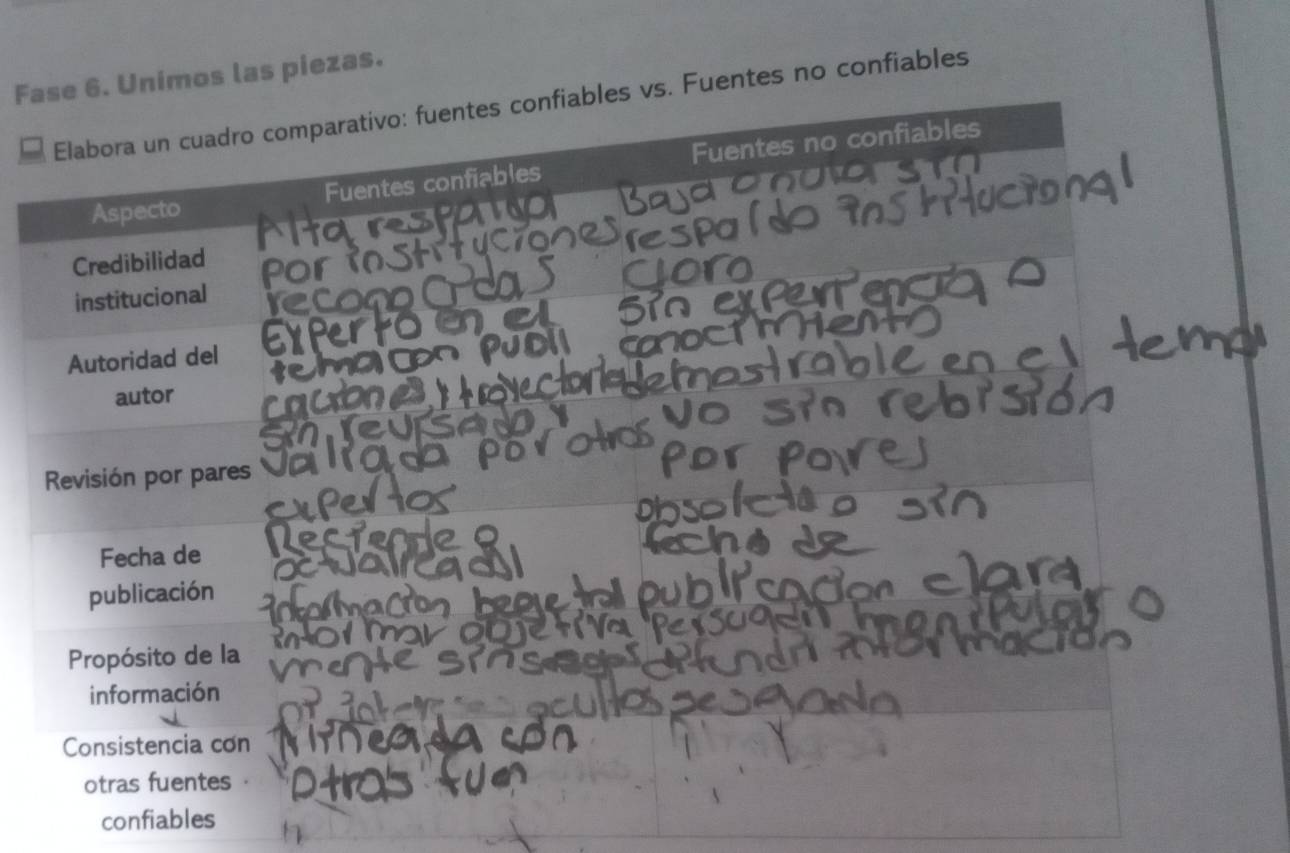 Fase 6. Unimos las piezas.
Elabora un cuadro comparativo: fuentes confiables vs. Fuentes no confiables
Aspecto
Fuentes confiables
Fuentes no confiables
Credibilidad
institucional
Alta respalda
por instituciones
recogo Cidas
Baja o nula sin
respaldo institucional
cloro
Autoridad del
autor
Experto en el
tema con publi
caciones y trayectoria
sin experiencia o
conocimiento
demostrable en el tema
Revisión por pares
sin, revisado y
valiada por otros
expertos
vo sin rebisión
por pares
Fecha de
publicación
Reciende o
obsoleta o sin
fecha de
publicacion clara
Propósito de la
información
informacion
informar objetiva
mente sin sesgos
ni intereses ocultos
persuadir manipular o
difundir información
sesgada
Consistencia con
otras fuentes
confiables
Alineada con
otras fuen